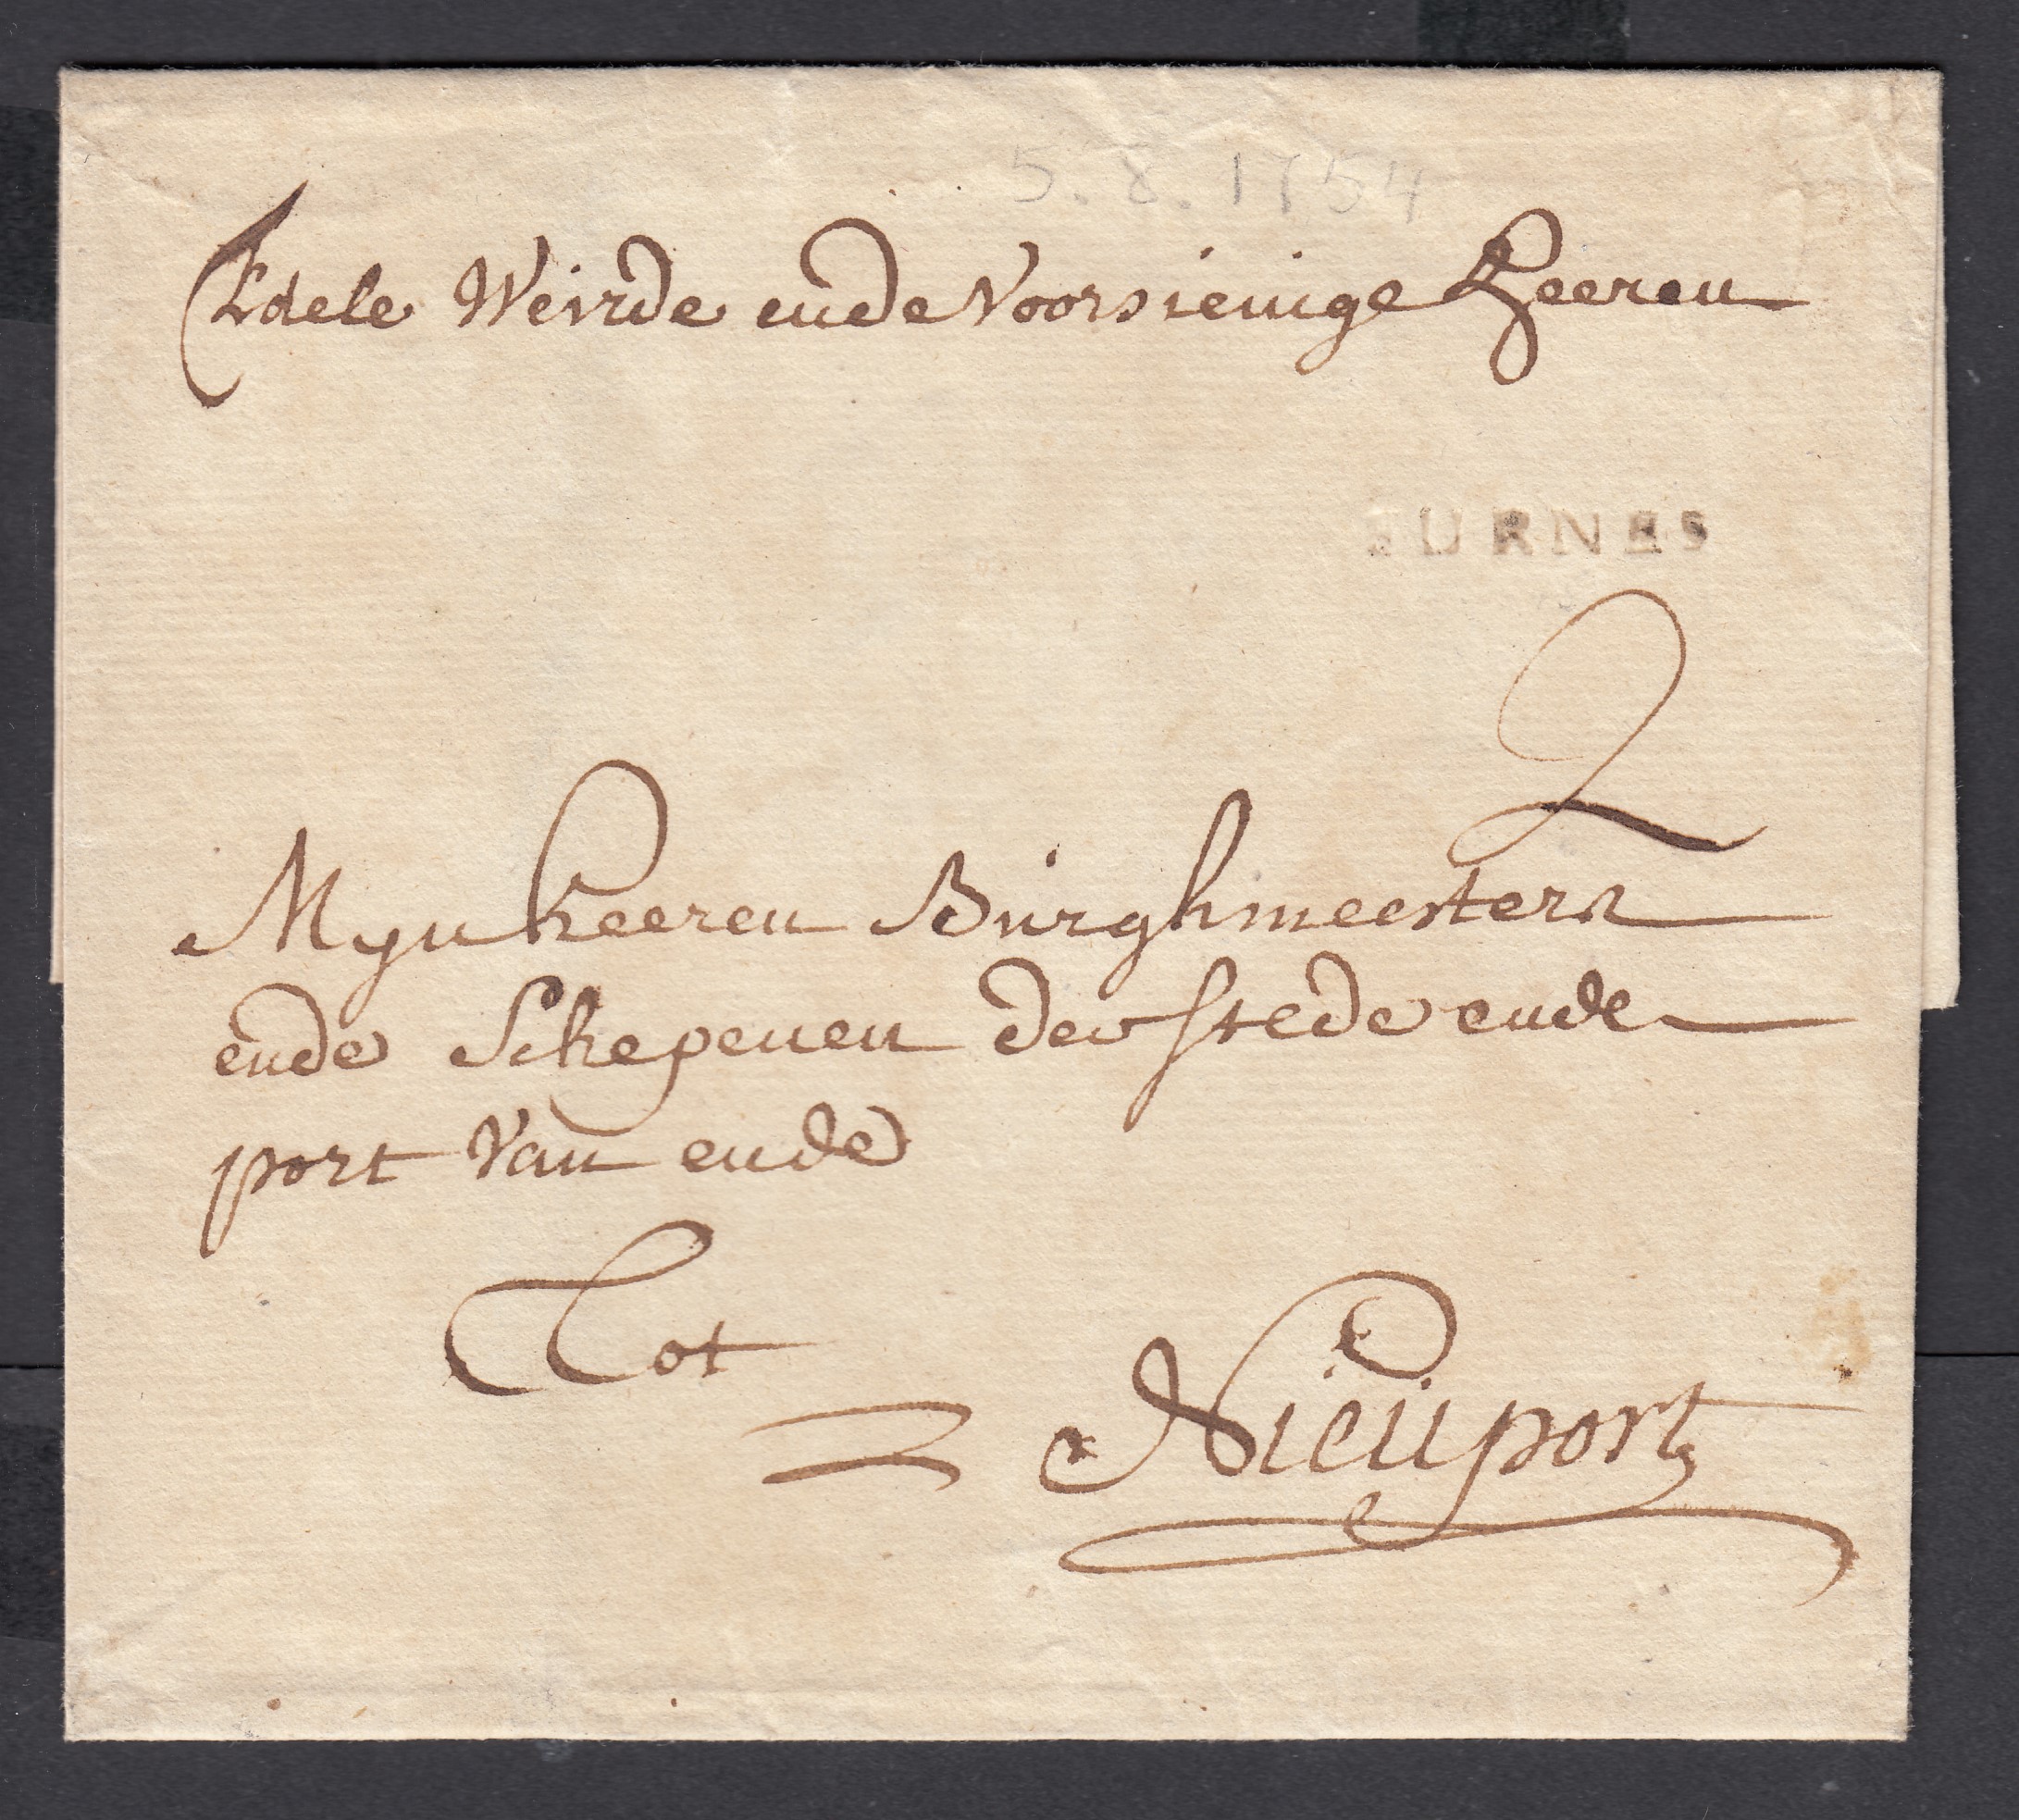 5.8.1754
Edele Weirde ende Voorsienige Heeren
FURNES
2
Mynheeren Burghmeesters
ende Schepenen der stede ende
port van ende
Tot
Nieuport